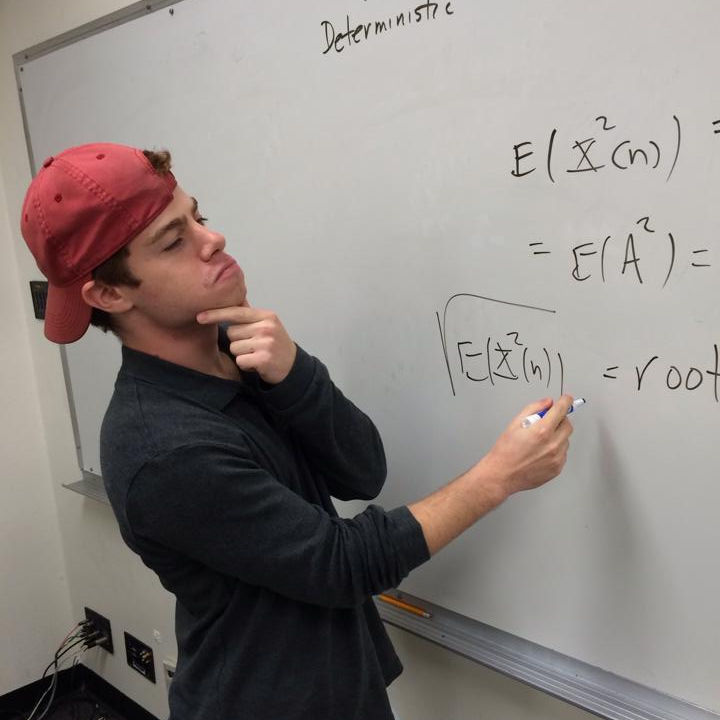 Deterministic
E(X²(n)) =
= E(A²) =
√E(X²(n)) = root